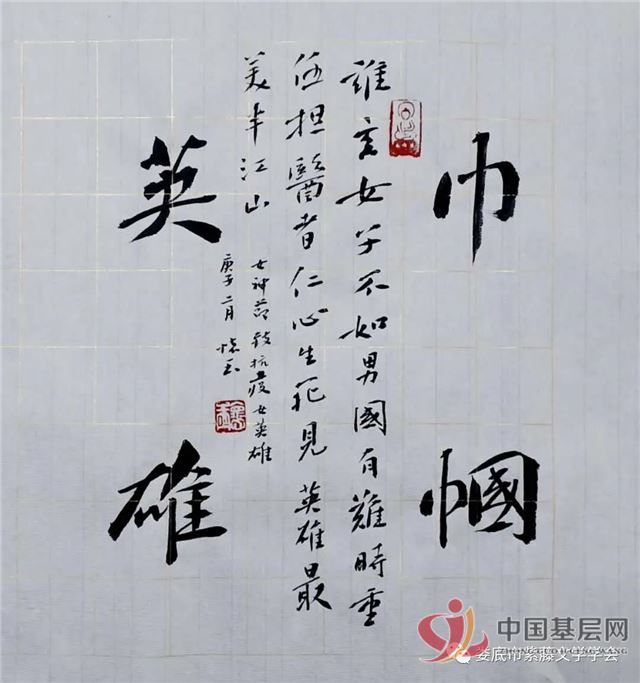 巾幗
誰言女子不如男國有難時重
任担醫者仁心生死見英雄最
美半江山
女神节致抗疫女英雄
庚子二月
英雄
中国基层网
娄底市紫藤文学学会